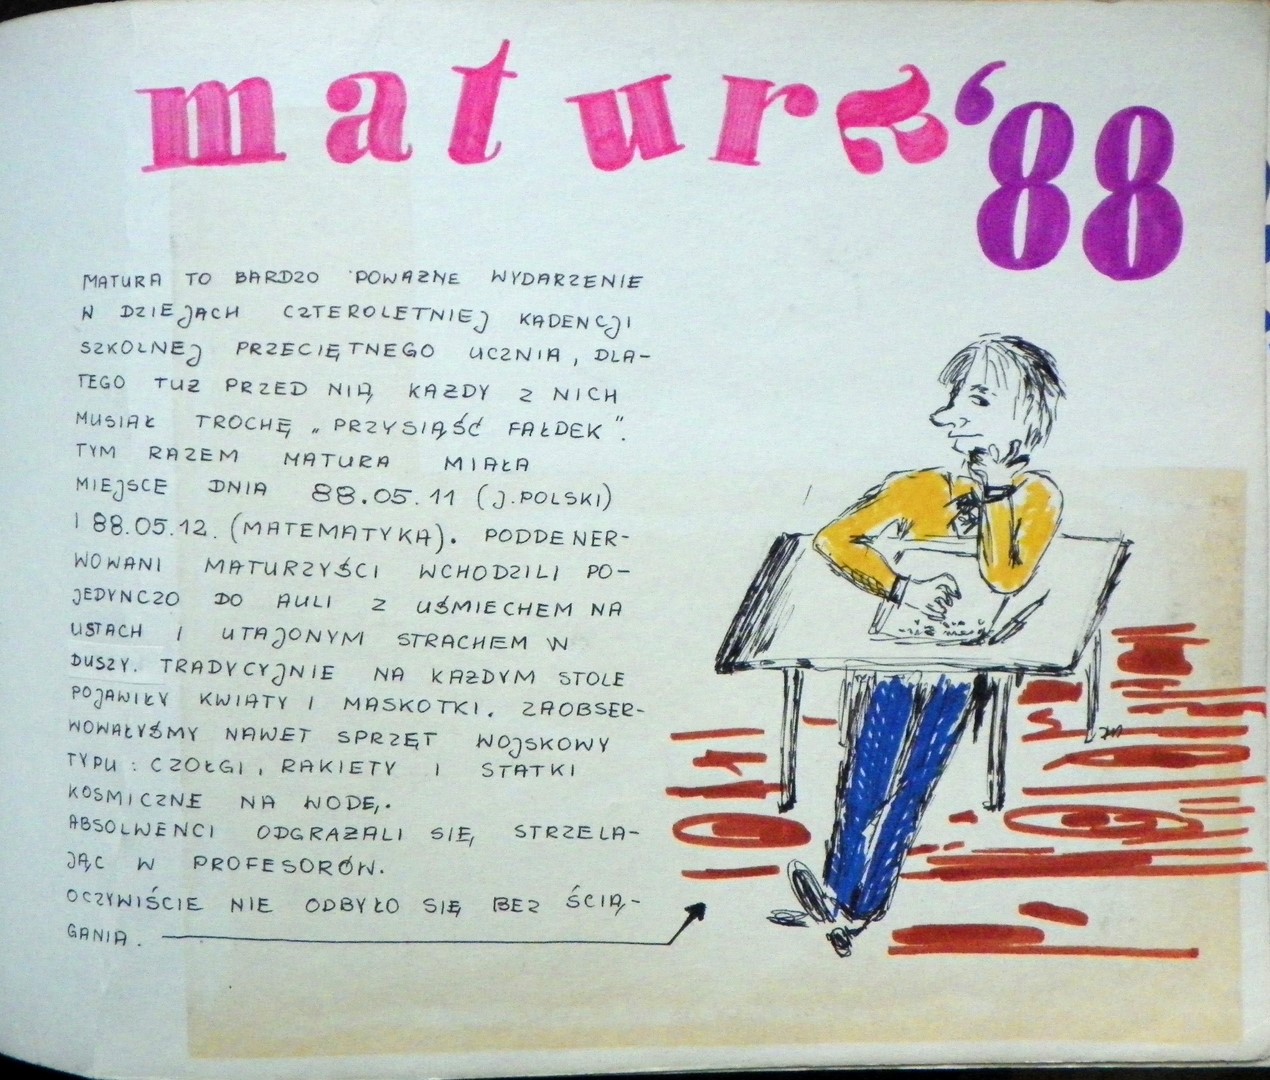 matura '88
MATURA TO BARDZO POWAŻNE WYDARZENIE
W DZIEJACH CZTEROLETNIEJ KADENCJI
SZKOLNEJ PRZECIĘTNEGO UCZNIA, DLA-
TEGO TUŻ PRZED NIĄ KAŻDY Z NICH
MUSIAŁ TROCHĘ „PRZYSIĄŚĆ FAŁDEK".
TYM RAZEM MATURA MIAŁA
MIEJSCE DNIA 88.05.11 (J.POLSKI)
I 88.05.12. (MATEMATYKA). PODDENER-
WOWANI MATURZYŚCI WCHODZILI PO-
JEDYNCZO DO AULI Z UŚMIECHEM NA
USTACH I UTAJONYM STRACHEM W
DUSZY. TRADYCYJNIE NA KAŻDYM STOLE
POJAWIŁY KWIATY I MASKOTKI. ZAOBSER-
WOWAŁYŚMY NAWET SPRZĘT WOJSKOWY
TYPU: CZOŁGI, RAKIETY I STATKI
KOSMICZNE NA WODĘ.
ABSOLWENCI ODGRAŻALI SIĘ, STRZELA-
JĄC W PROFESORÓW.
OCZYWIŚCIE NIE ODBYŁO SIĘ BEZ ŚCIĄ-
GANIA.